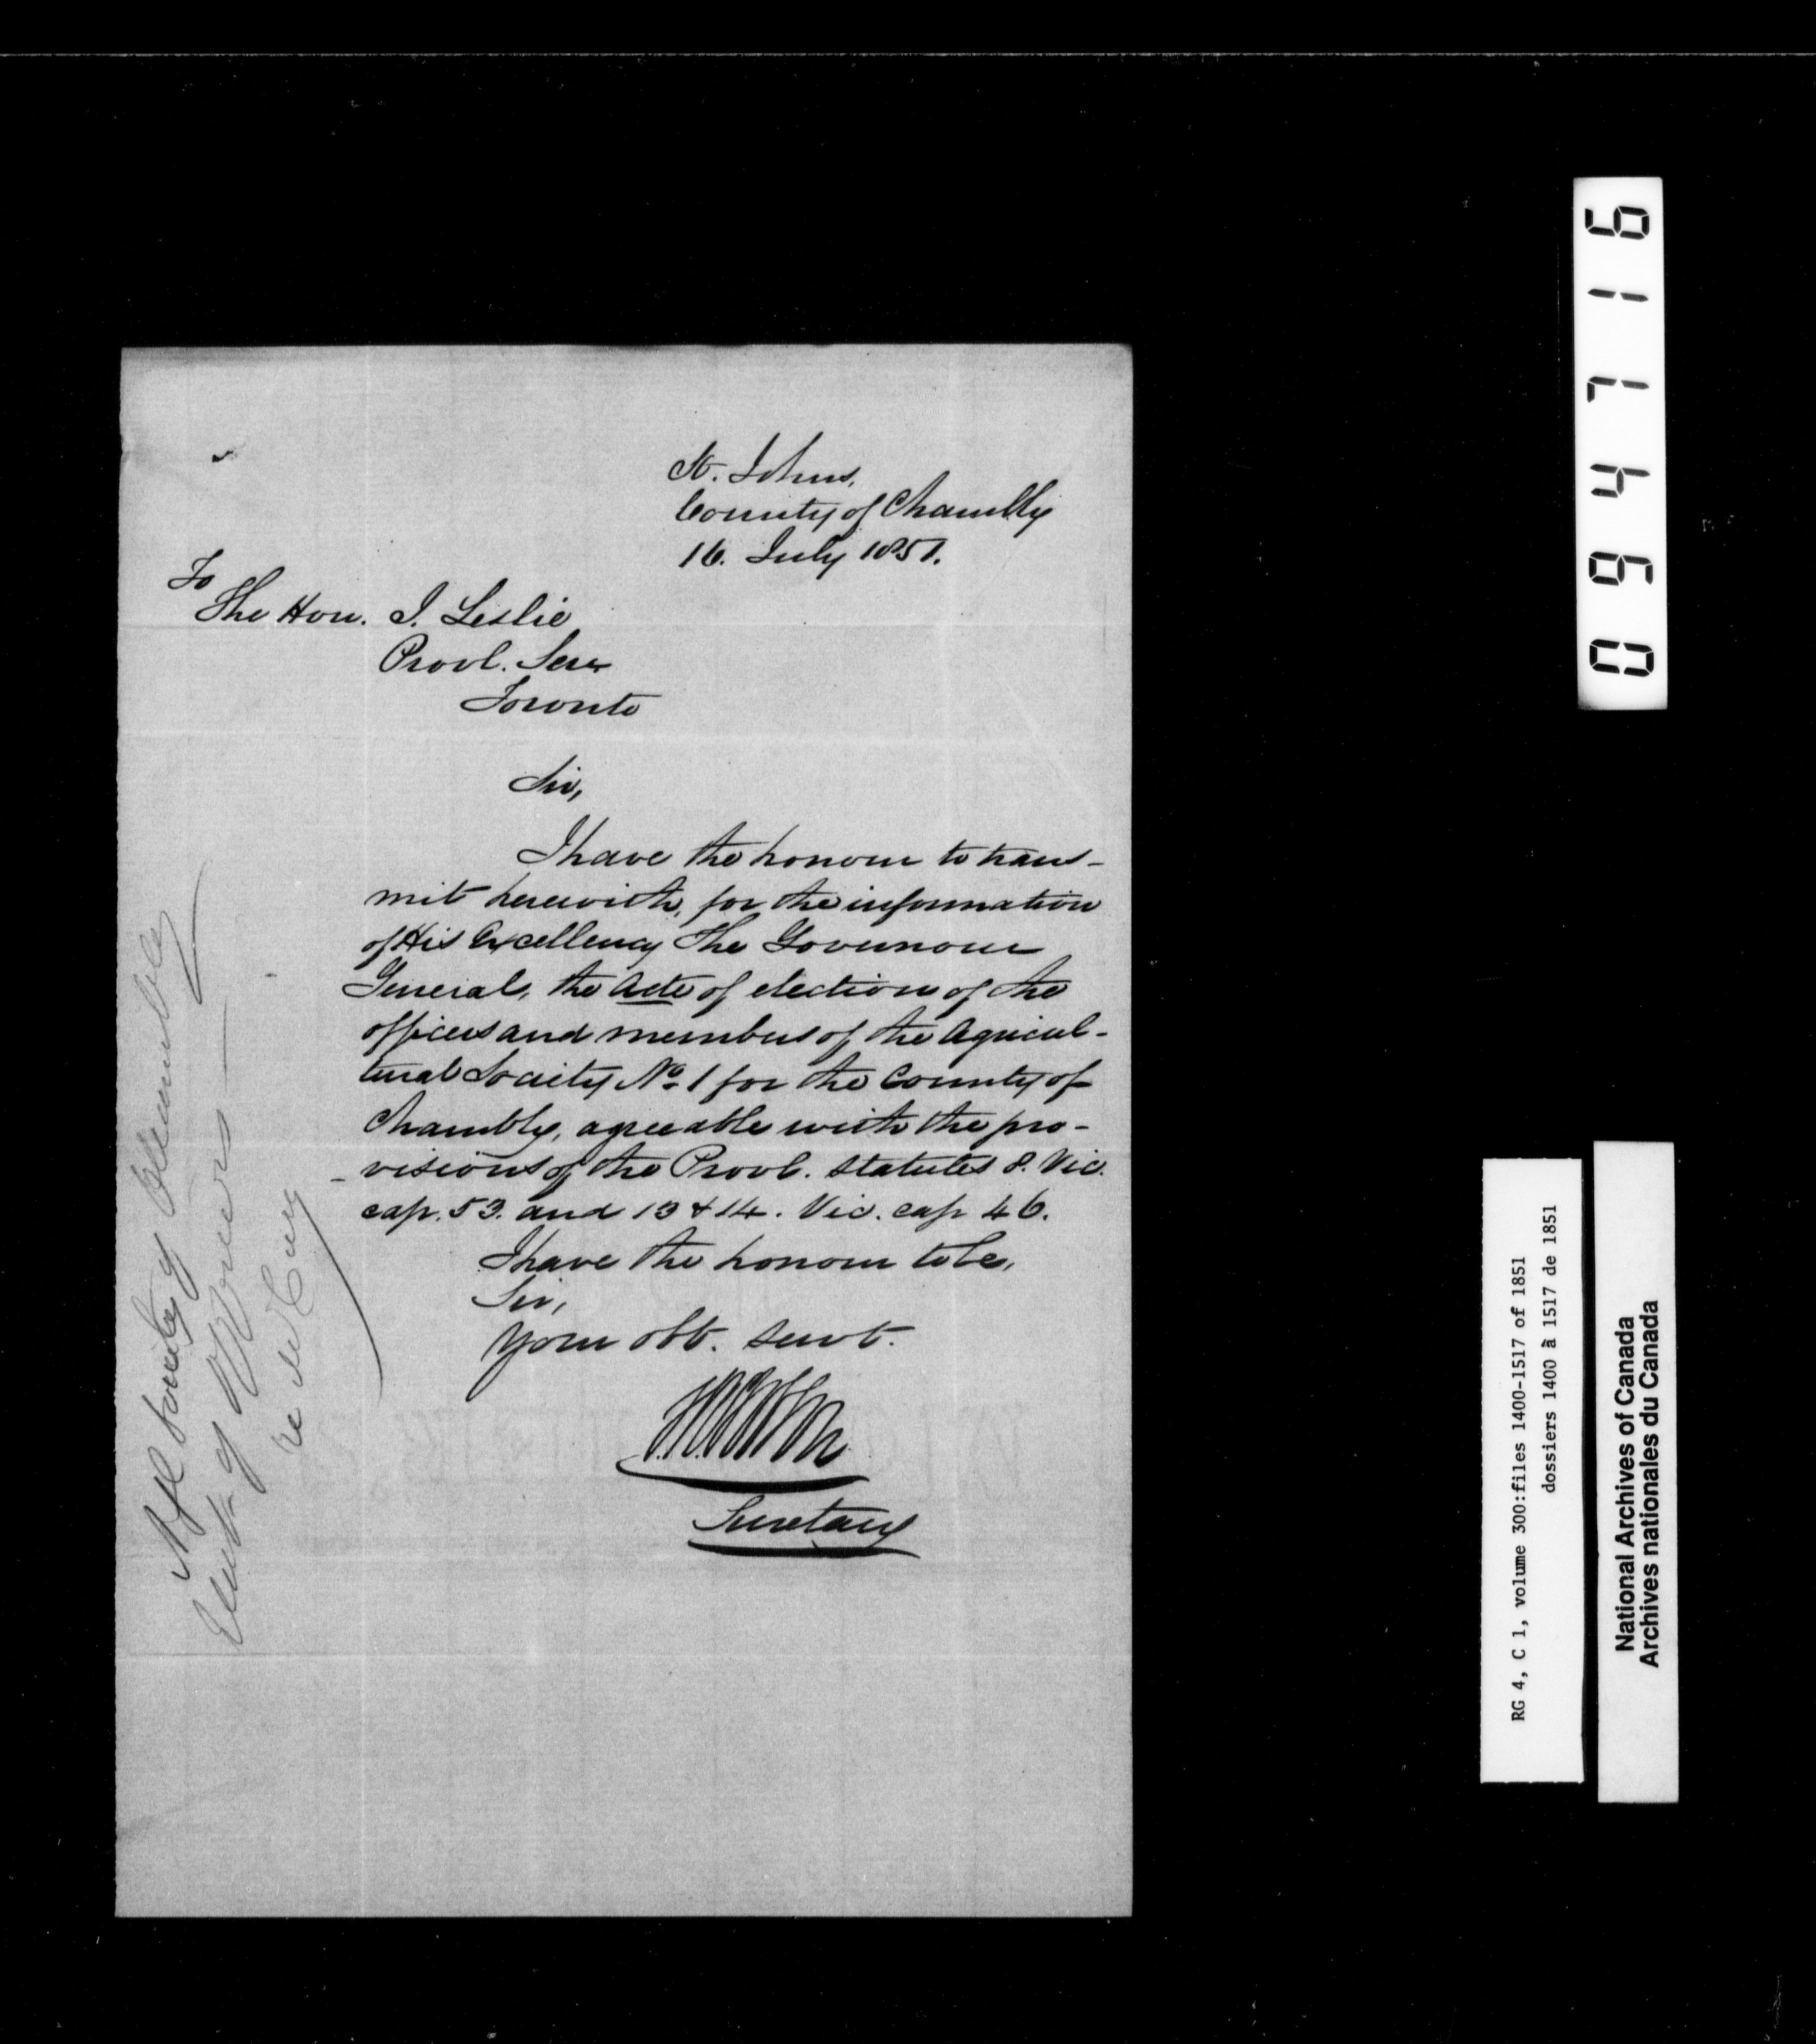 St. Johns,
County of Chambly
16. July 1851.
To
The Hon. J. Leslie
Provl. Secy
Toronto
Sir,
I have the honour to trans-
mit herewith, for the information
of His Excellency The Governour
General, the Acte of election of the
officers and members of the Agricul-
tural Society No. 1 for the County of
Chambly, agreeable with the pro-
-visions of the Provl. Statutes 8. Vic.
cap. 53. and 13 & 14. Vic. cap 46.
I have the honour to be,
Sir,
Your obt. Servt.
Secretary
Agl Society of Chambly
Electn of Officers
094716
RG 4, C 1, volume 300:files 1400-1517 of 1851
dossiers 1400 à 1517 de 1851
National Archives of Canada
Archives nationales du Canada